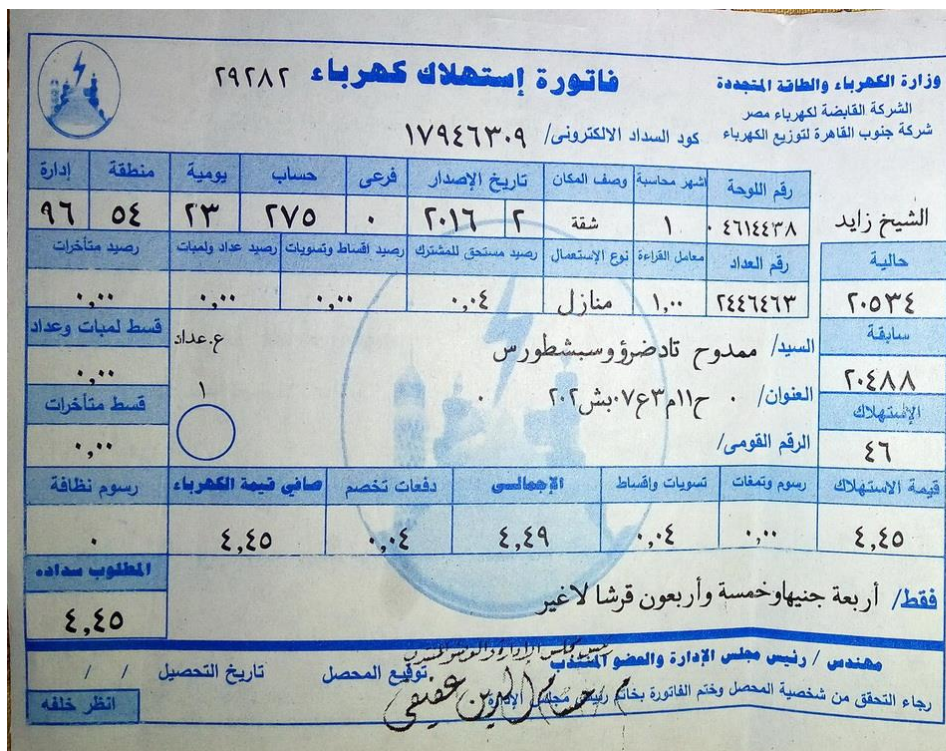 وزارة الكهرباء والطاقة المتجددة
الشركة القابضة لكهرباء مصر
شركة جنوب القاهرة لتوزيع الكهرباء
فاتورة إستهلاك كهرباء ٢٩٢٨٢
كود السداد الالكترونى/ ١٧٩٤٦٣٠٩
الشيخ زايد
رقم اللوحة اشهر محاسبة وصف المكان تاريخ الإصدار فرعى حساب يومية منطقة إدارة
٤٦١٤٤٣٨ ٠ ١ شقة ٢ ٢٠١٦ ٠ ٢٧٥ ٢٣ ٥٤ ٩٦
حالية رقم العداد معامل القراءة نوع الإستعمال رصيد مستحق للمشترك رصيد اقساط وتسويات رصيد عداد ولمبات رصيد متأخرات
٢٠٥٣٤ ٢٤٤٦٤٦٣ ١,٠٠ منازل ٠,٠٤ ٠,٠٠ ٠,٠٠ ٠,٠٠
سابقة
٢٠٤٨٨
السيد/ ممدوح تادضرؤوسبشطورس
ع.عداد
١
قسط لمبات وعداد
٠,٠٠
العنوان/ ٠ ح١١م٣ع٠٧بش٢٠٢ ٠
الإستهلاك
٤٦
الرقم القومى/
قسط متأخرات
٠,٠٠
قيمة الاستهلاك رسوم وتمغات تسويات واقساط الإجمالـــى دفعات تخصم صافي قيمة الكهرباء رسوم نظافة
٤,٤٥ ٠,٠٠ ٠,٠٤ ٤,٤٩ ٠,٠٤ ٤,٤٥ ٠
المطلوب سداده
٤,٤٥
فقط/ أربعة جنيهاوخمسة وأربعون قرشا لاغير
مهندس / رئيس مجلس الإدارة والعضو المنتدب
توقيع المحصل تاريخ التحصيل / /
رجاء التحقق من شخصية المحصل وختم الفاتورة بخاتم رئيس مجلس الإدارة
حسام الدين عفيفى
انظر خلفه